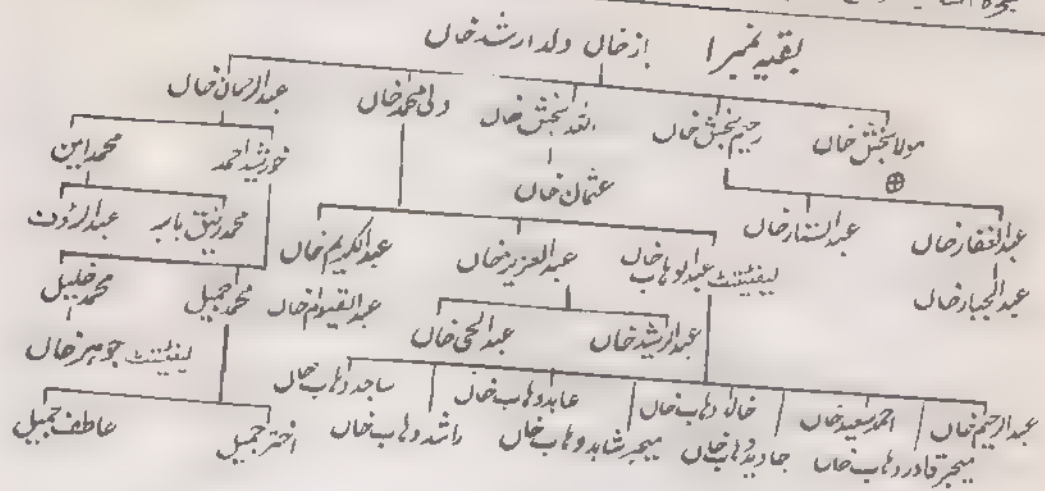 بقیہ نمبر ۱ باز خاں ولد ارشد خاں
مولا بخش خاں رحیم بخش خاں اللہ بخش خاں ولی محمد خاں عبدالرحمان خاں
عثمان خاں خورشید احمد محمد امین
عبدالغفار خاں عبدالستار خاں لیفٹیننٹ عبدالوہاب خاں عبدالعزیز خاں عبدالکریم خاں محمد رفیق بابر عبدالرؤف
عبدالجبار خاں عبدالرشید خاں عبدالحئی خاں عبدالقیوم خاں محمد جمیل محمد خلیل
لیفٹیننٹ جوہر خاں
عبدالرحیم خاں احمد سعید خاں خالد وہاب خاں عابد وہاب خاں ساجد وہاب خاں
میجر قادر وہاب خاں جاوید وہاب خاں میجر شاہد وہاب خاں راشد وہاب خاں اختر جمیل عاطف جمیل